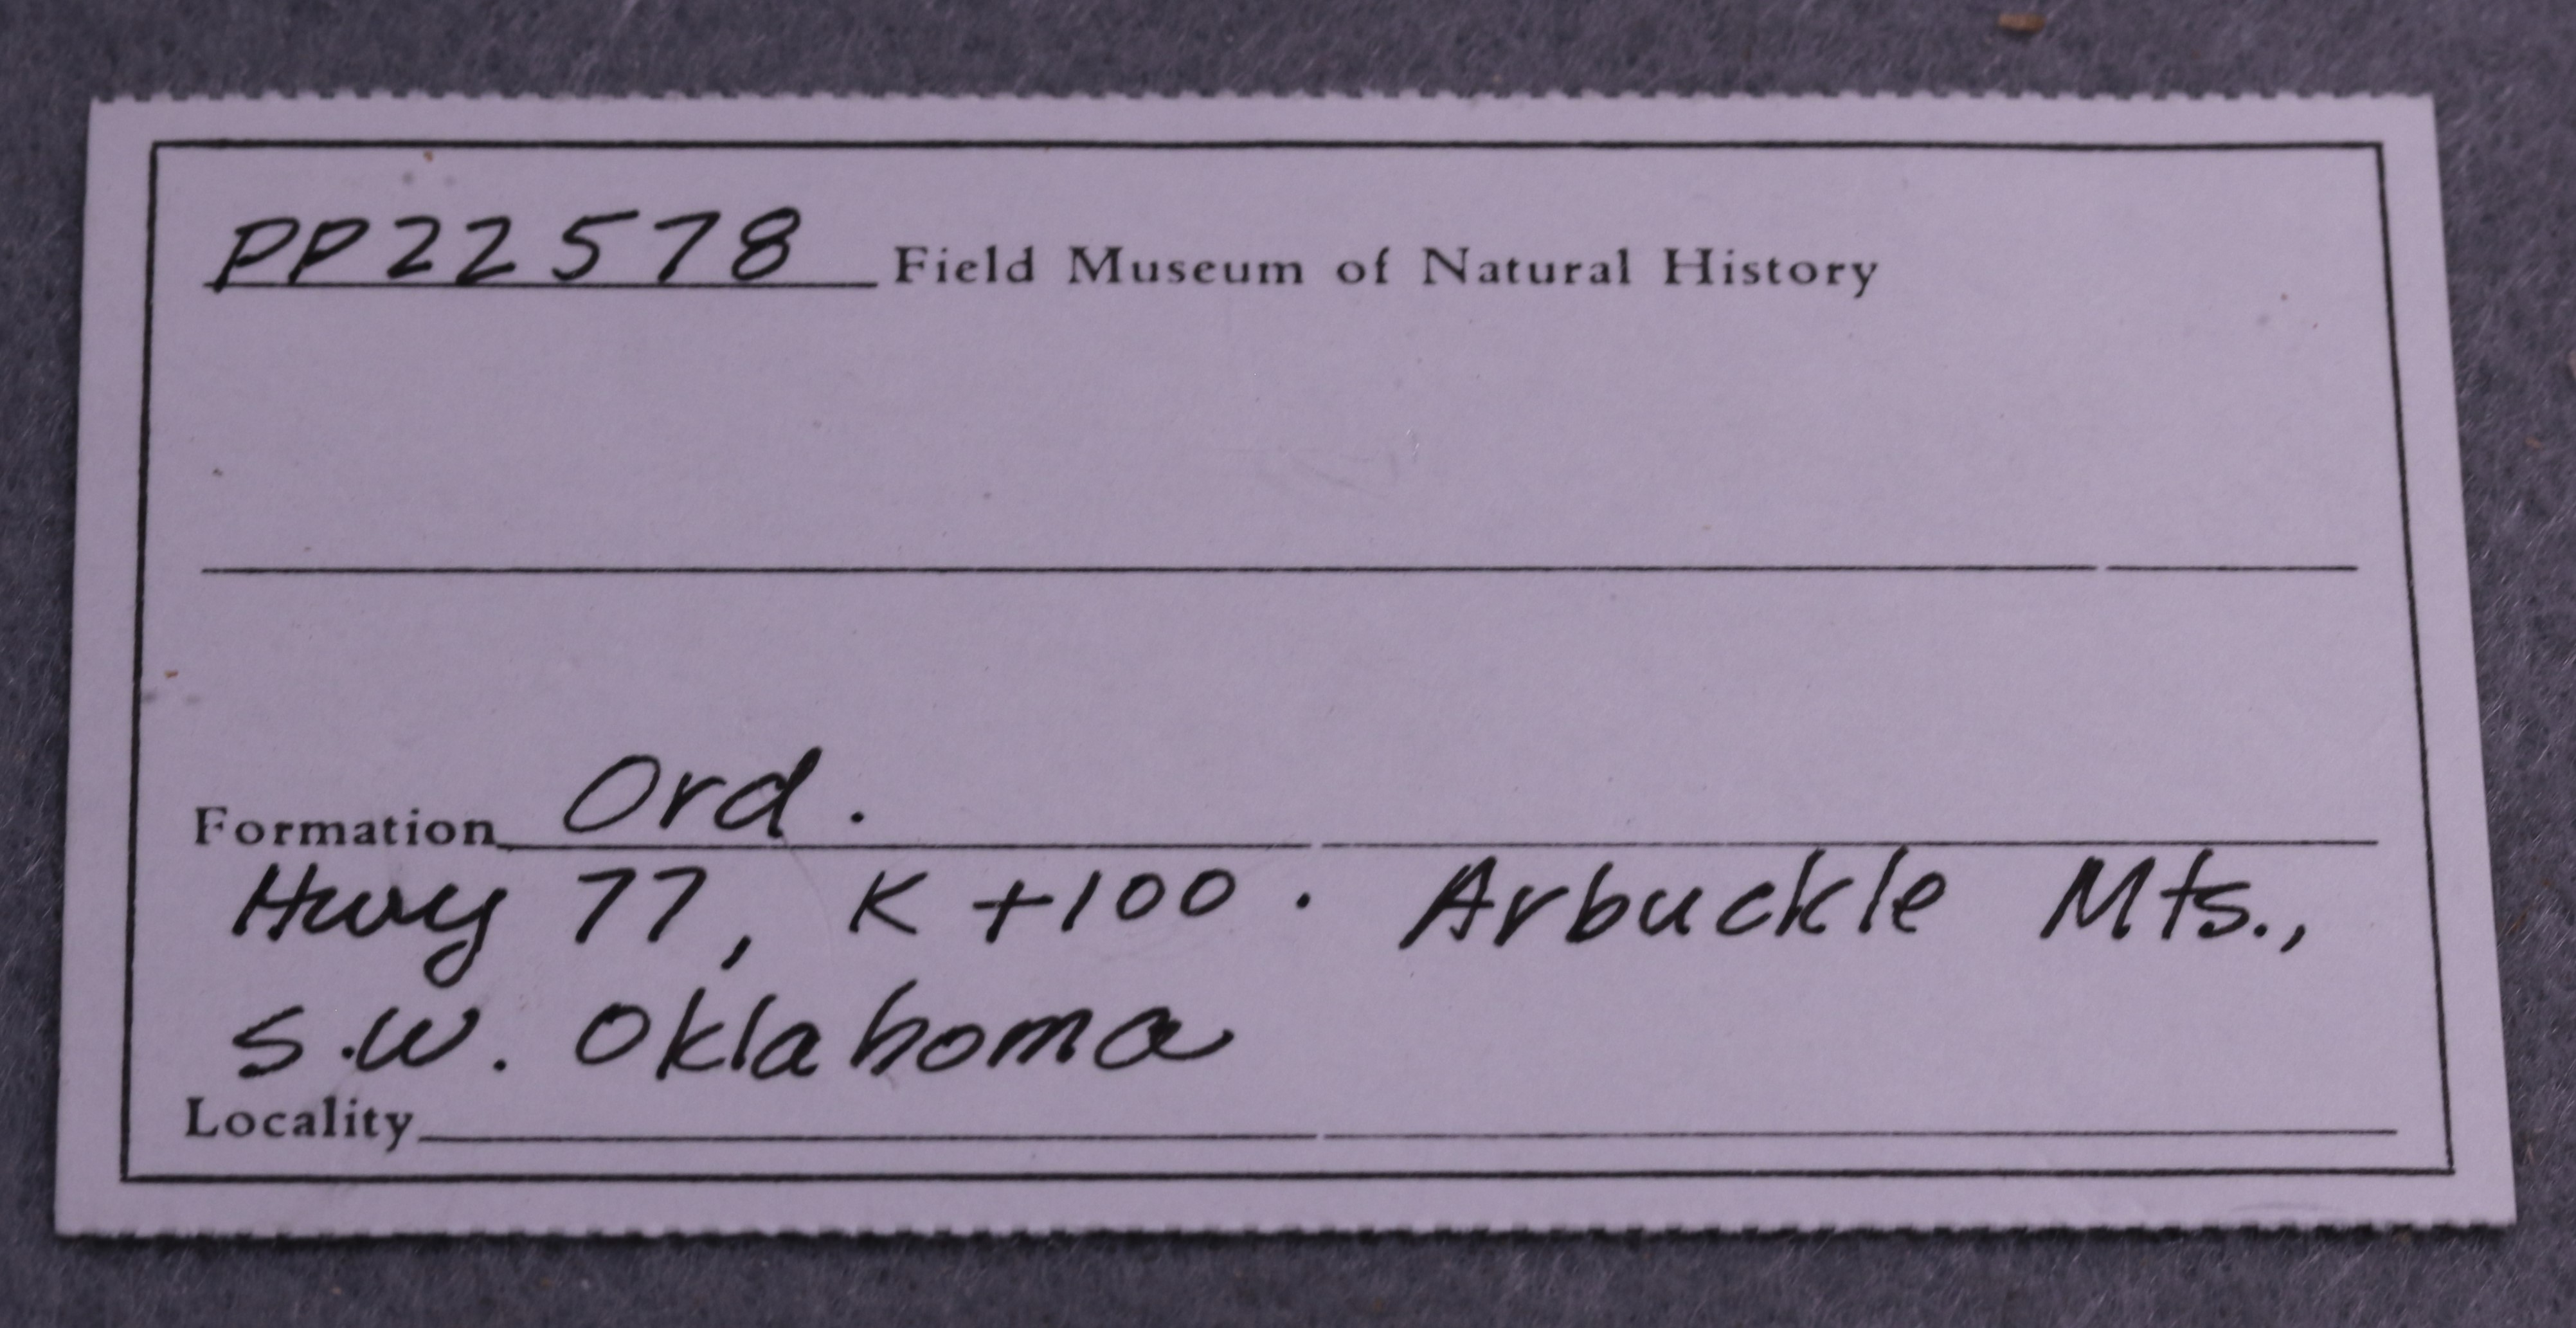 PP22578 Field Museum of Natural History
Formation Ord.
Hwy 77, K +100. Arbuckle Mts.,
S.W. Oklahoma
Locality